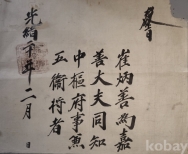 敎旨
崔炳善爲嘉
善大夫同知
中樞府事兼
五衛將者
光緖十五年二月 日
kobay